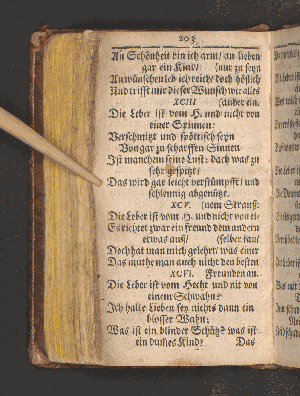 203
An Schönheit bin ich arm/ an lieben
gar ein Kind/ (nur zu seyn
An wünschen leb ich reich/ doch höflich
Und trifft mir dieser Wunsch wie alles
XCIII (ander ein.
Die Leber ist vom H. und nicht von
einer Spinnen:
Verschmitzt und spöttisch seyn
Von gar zu scharffen Sinnen
Ist manchem seine Lust: dach was zu
sehr gespitzt/
Das wird gar leicht verstümpfft/ und
schlennig abgenützt.
XCV. (nem Strauß:
Die Leber ist vom H. und nicht von ei-
Es richtet zwar ein freund dem andern
etwas auß/ (selber kan/
Doch hat man mich gelehrt/ was einer
Das muthe man auch nicht den besten
XCVI. Freunden an.
Die Leber ist vom Hecht und nit von
einem Schwahn:
Ich halte Lieben sey nichts dann ein
blosser Wahn:
Was ist ein blinder Schütz? was ist
ein dummes Kind? Das